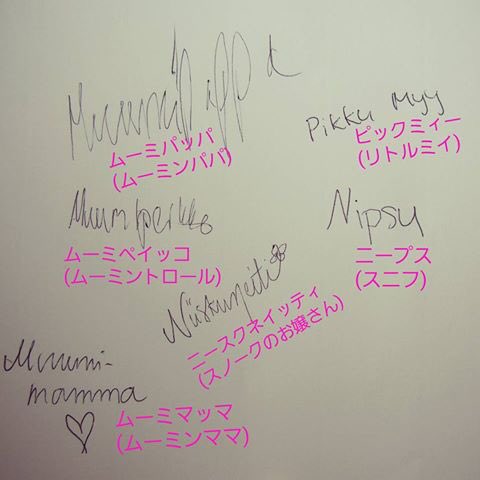 Muumipappa
ムーミパッパ
(ムーミンパパ)
Pikku Myy
ピックミィー
(リトルミイ)
Muumipeikko
ムーミペイッコ
(ムーミントロール)
Nipsu
ニープス
(スニフ)
Niiskuneiti
ニースクネイッティ
(スノークのお嬢さん)
Muumi-
mamma
ムーミマッマ
(ムーミンママ)